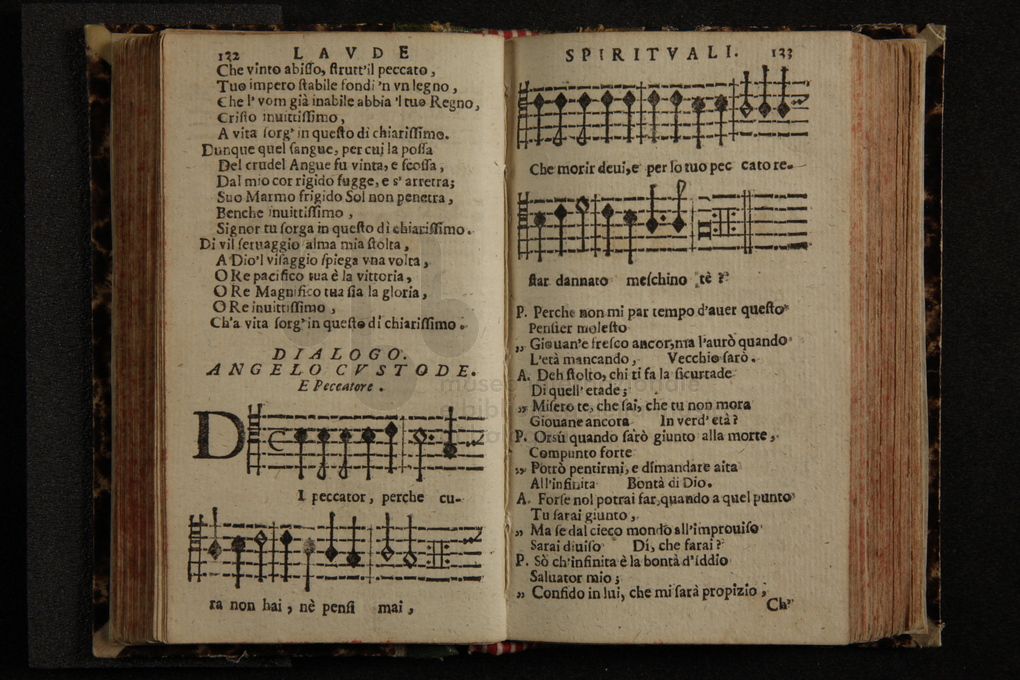 122 LAVDE
Che vinto abiſſo, ſtrutt'il peccato,
Tuo impero ſtabile fondi 'n vn legno,
Che l' vom già inabile abbia 'l tuo Regno,
Criſto inuittiſſimo,
A vita ſorg' in queſto dì chiariſſimo.
Dunque quel ſangue, per cui la poſſa
Del crudel Angue fu vinta, e ſcoſſa,
Dal mio cor rigido fugge, e s' arretra;
Suo Marmo frigido Sol non penetra,
Benche inuittiſſimo,
Signor tu ſorga in queſto dì chiariſſimo.
Di vil ſeruaggio alma mia ſtolta,
A Dio'l viſaggio ſpiega vna volta,
O Re pacifico tua è la vittoria,
O Re Magnifico tua ſia la gloria,
O Re inuittiſſimo,
Ch'a vita ſorg' in queſto dì chiariſſimo.
DIALOGO.
ANGELO CVSTODE.
E Peccatore.
DI peccator, perche cu-
ra non hai, nè penſi mai,
SPIRITVALI. 123
Che morir deui, e per lo tuo pec cato re-
ſtar dannato meſchino tè?
P. Perche non mi par tempo d'auer queſto
Penſier moleſto
„ Giouan'e freſco ancor, ma l'aurò quando
L'età mancando, Vecchio ſarò.
A. Deh ſtolto, chi ti fa la ſicurtade
Di quell' etade;
„ Miſero te, che ſai, che tu non mora
Giouane ancora In verd' età?
P. Orsù quando ſarò giunto alla morte,
Compunto forte
„ Potrò pentirmi, e dimandare aita
All'infinita Bontà di Dio.
A. Forſe nol potrai far, quando a quel punto
Tu ſarai giunto,
„ Ma ſe dal cieco mondo all'improuiſo
Sarai diuiſo Dì, che farai?
P. Sò ch'infinita è la bontà d'Iddio
Saluator mio;
„ Confido in lui, che mi ſarà propizio,
Ch'